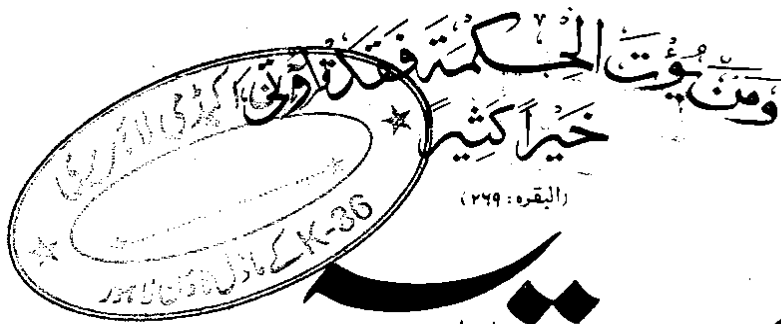 وَمَن يُؤْتَ الْحِكْمَةَ فَقَدْ أُوتِيَ
خَيْرًا كَثِيرًا
(البقره: ۲۶۹)
اکیڈمی لائبریری
K-36 کے ماڈل ٹاؤن لاہور